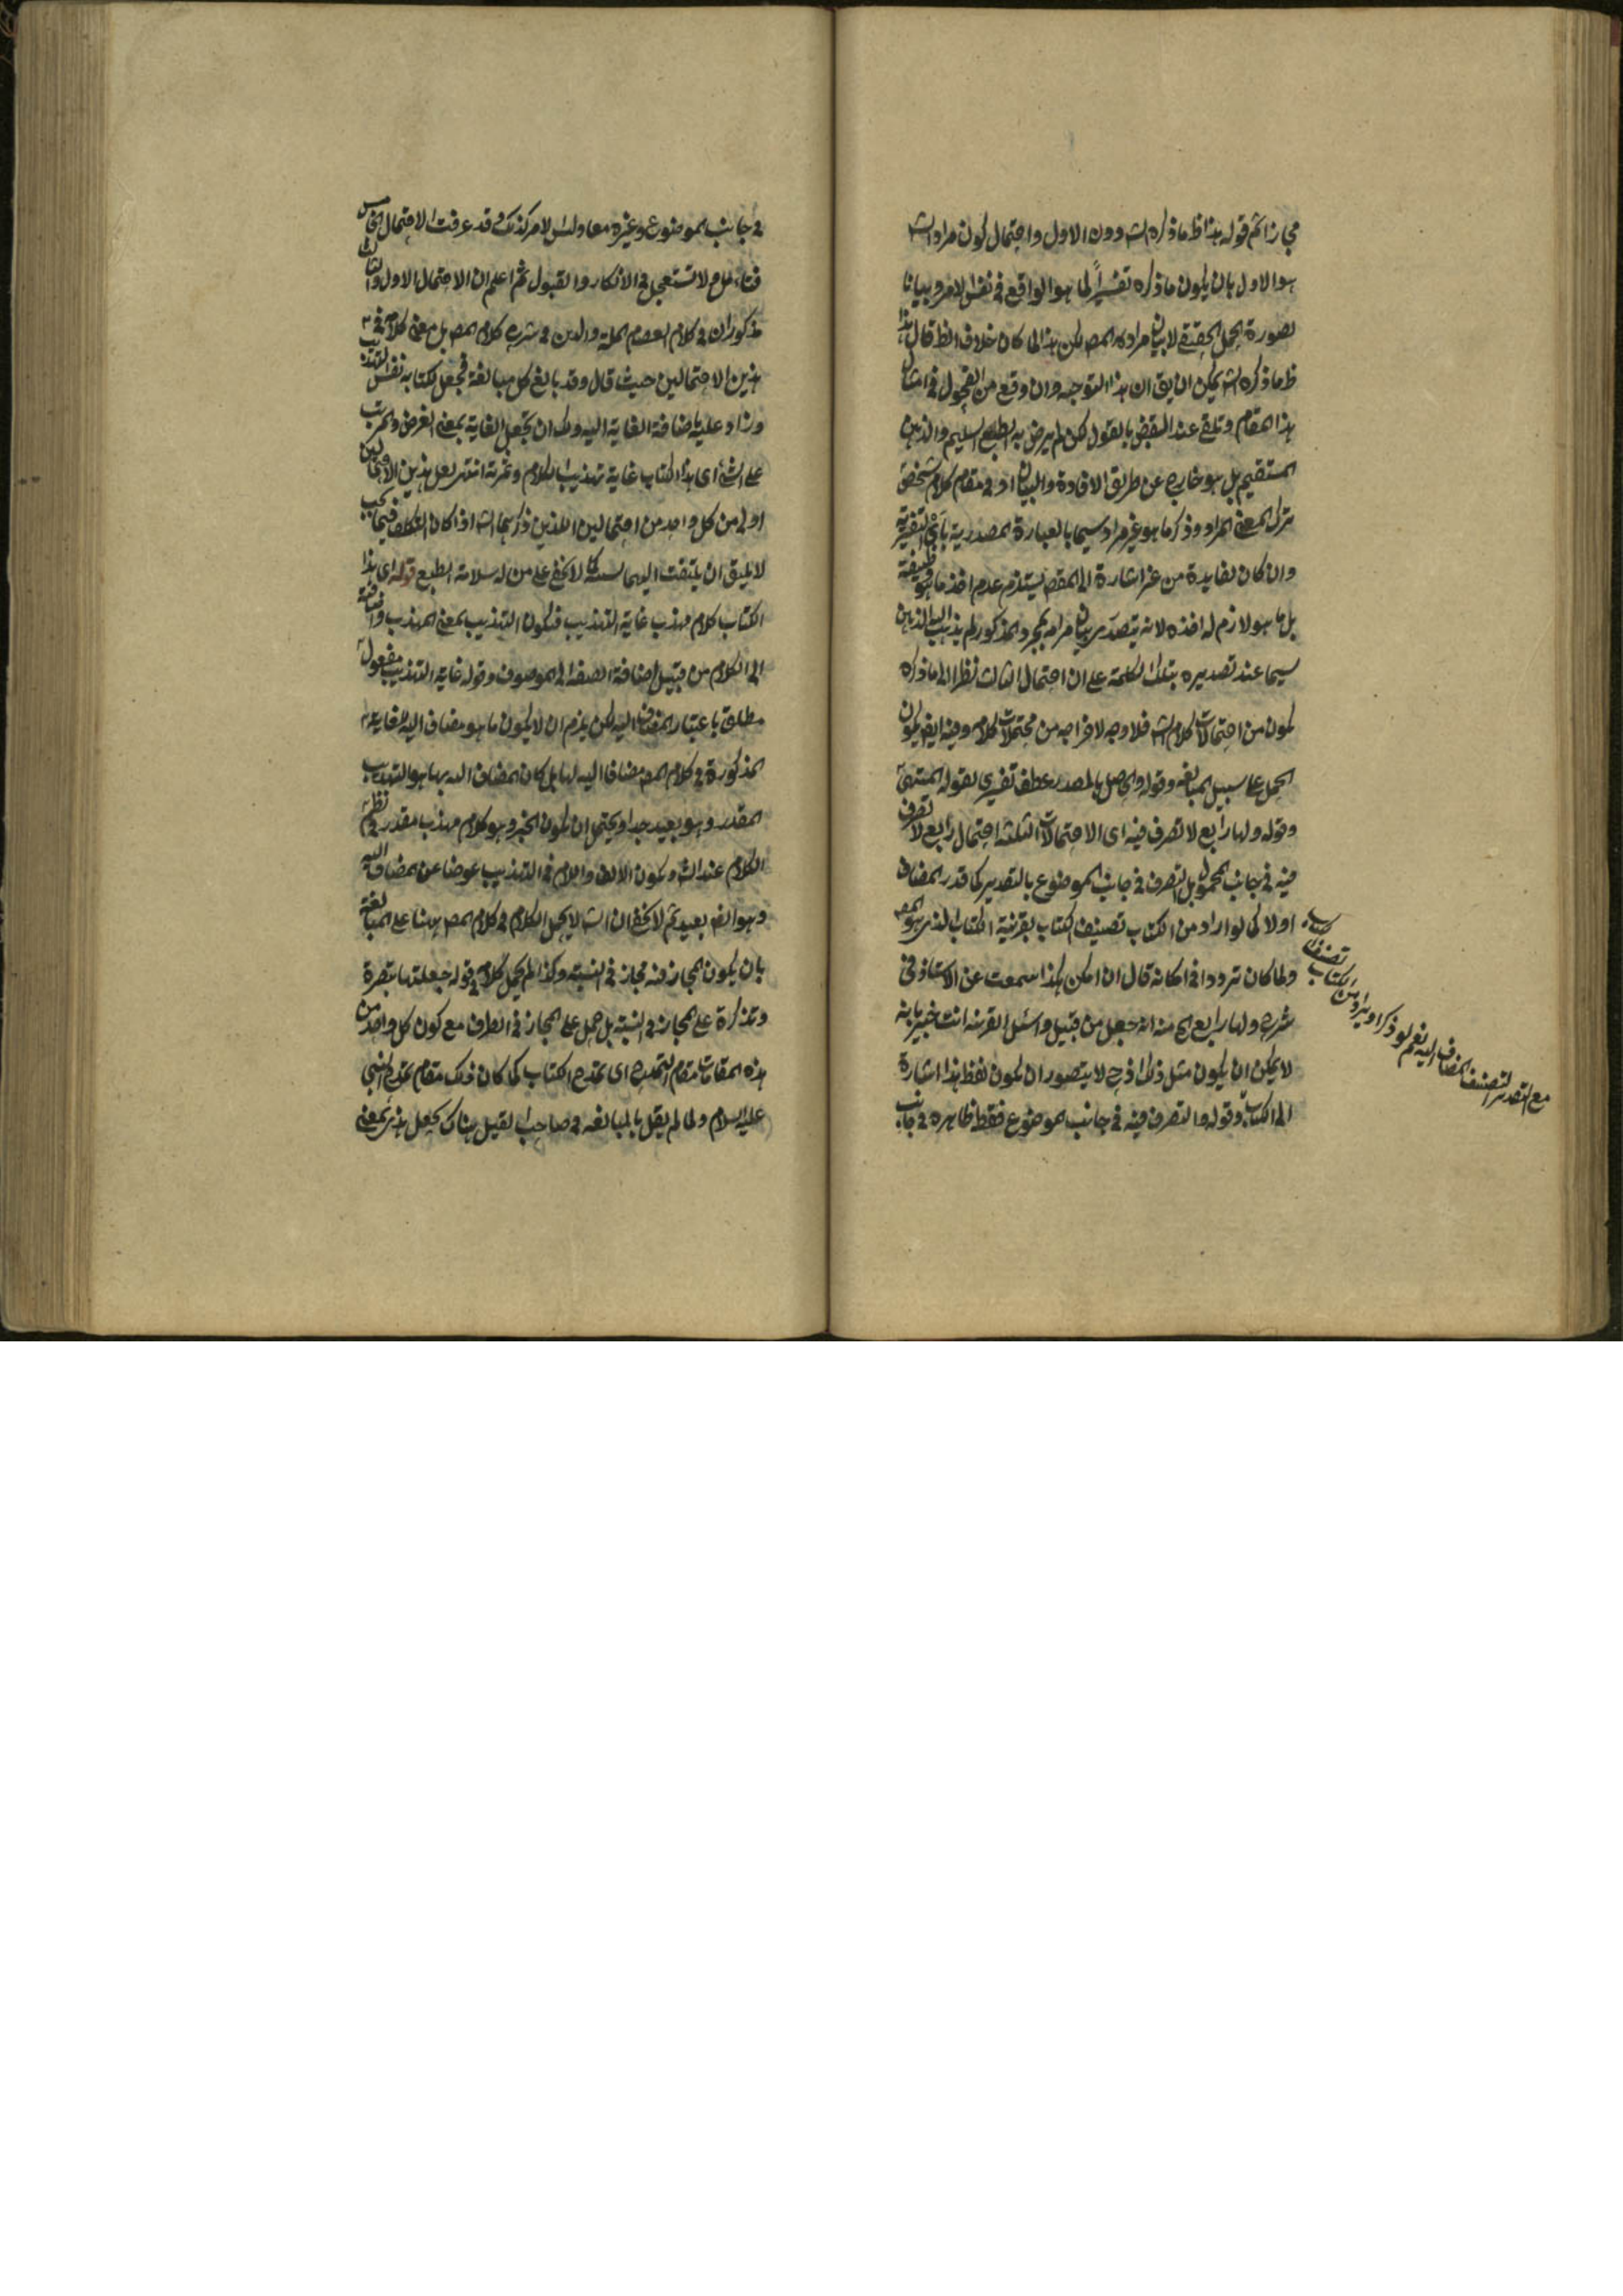 مجازا ثم قوله هذا ظ ما ذكره الشه دون الاول واحتمال كون مراد الشه
هو الاول بان يكون ما ذكره تفسيرا لما هو الواقع فى نفس الامر وبيانا
لصورة الحمل الحقيقى لا بيان مراد المصه لكن هذا لما كان خلاف الظ قال هذا
ظ ما ذكره الشه يمكن ان يق ان هذا التوجيه وان وقع من الفحول فى امثال
هذا المقام وتلقى عند البعض بالقبول لكن لم يرض به الطبع السليم والذهن
المستقيم بل هو خارج عن طريق الافادة والبيان اذ فى مقام كلام شخص
ترك المعنى المراد وذكر ما هو غير مراد سيما بالعبارة المصدرية باى التفسيرية
وان كان لفايدة من غير اشارة الى المقصه يستلزم عدم اخذ ما هو وظيفة
بل ما هو لازم له اخذه لانه بتصدر بيان مرامه بمجرد المذكور لم يذهب اليه الذهن
سيما عند تصديره بتلك الكلمة على ان احتمال الثالث نظرا الى ما ذكره
يكون من احتمالات كلام الشه فلا وجه لاخراجه من محتملات كلامه وفيه ايضه يكون
الحمل على سبيل المبالغه وقوله والحاصل بالمصدر عطف تفسيرى لقوله المنتهى
وقوله ولها رابع لا تصرف فيه اى الاحتمالات الثلثه احتمال رابع لا تصرف
فيه فى جانب المحمول بل التصرف فى جانب الموضوع بالتقدير كما قدر المضاف
اولا كما لو اراد من الكتاب تصنيف الكتاب بقرينة الكتاب الذى هو المصه
ولما كان ترددا فى امكانه قال ان امكن هكذا سمعت عن الاستاذ فى
شرح ولها رابع الخ منه انه جعل من قبيل واسئل القرية انت خبير بانه
لا يمكن ان يكون مثل ذلك اذ ح لا يتصور ان يكون لفظ هذا اشارة
الى الكتاب وقوله والتصرف فيه فى جانب الموضوع فقط ظاهره فى جانب
مع التقدير لتصنيف المضاف اليه نعم لو ذكر او يراد من الكتاب تصنيف كتاب
فى جانب الموضوع وغيره معا وليس الامر كذلك وقد عرفت الاحتمال الخامس
فتامل ولا تستعجل فى الانكار والقبول ثم اعلم ان الاحتمال الاول والثالث
مذكوران فى كلام العصام الملة والدين فى شرح كلام المصه بل معنى كلامه فى
هذين الاحتمالين حيث قال وقد بالغ كل مبالغة فجعل كتابه نفس التهذيب
وزاد عليه باضافة الغاية اليه ولك ان تجعل الغاية بمعنى الغرض والمرتب
على الشئ اى هذا الكتاب غاية تهذيب الكلام وثمرته انتهى لعل هذين الاحتمالين
اولى من كل واحد من احتمالين اللذين ذكرهما الشه اذ كان التكلف فيما يجب
لا يليق ان يلتفت اليهما كما لا يخفى على من له سلامة الطبع قوله اى هذا
الكتاب كلام مهذب غاية التهذيب فيكون التهذيب بمعنى المهذب واضافته
الى الكلام من قبيل اضافة الصفة الى الموصوف وقوله غاية التهذيب مفعول
مطلق باعتبار المضاف اليه لكن يلزم ان لا يكون ما هو مضاف اليه لغاية
المذكورة فى كلام المصه مضافا اليه لها بل كان المضاف اليه بها هو التهذيب
المقدر وهو بعيد جدا ويحتمل ان يكون الخبر وهو كلام مهذب مقدر فى نظم
الكلام عند الشه ويكون الالف واللام فى التهذيب عوضا عن المضاف اليه
وهو ايضه بعيد ثم لا يخفى ان الشه لا يحمل الكلام فى كلام المصه ههنا على المبالغة
بان يكون المجاز فيه مجاز فى النسبة وكذا لم يحمل كلامه فى قوله جعلتها تبصرة
وتذكرة على المجاز فى النسبة بل حمل على المجاز فى الطرف مع كون كل واحد من
هذه المقامات مقام التمدح اى تمدح الكتاب كما كان ذلك مقام تمدح النبى
عليه السلام ولما لم يقل بالمبالغه فى صاحب القيل هناك بجعل هذى بمعنى